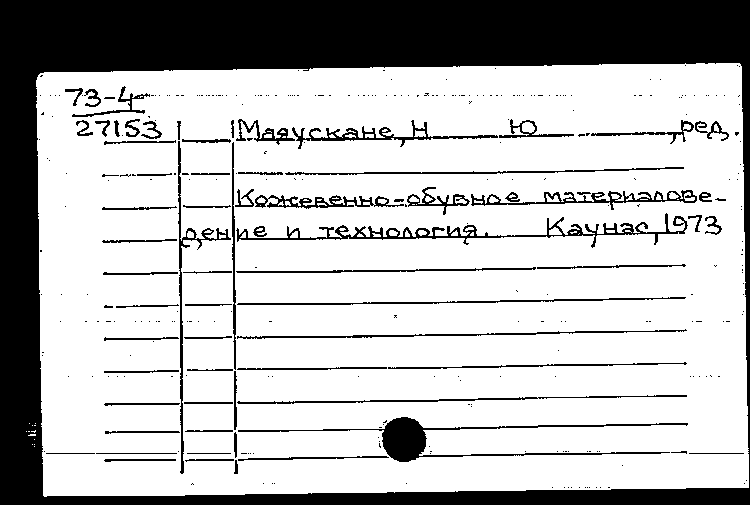 73-4
27153
Мацускане, Н Ю , ред.
Кожевенно-обувное материалове-
дение и технология. Каунас, 1973